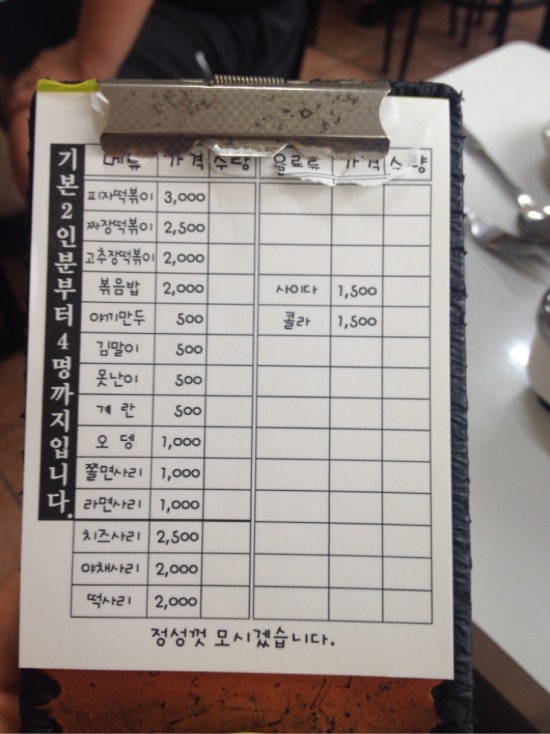 기본 2인분부터 4명까지입니다.
메뉴 가격 수량 음료류 가격 수량
피자떡볶이 3,000
짜장떡볶이 2,500
고추장떡볶이 2,000
볶음밥 2,000 사이다 1,500
야끼만두 500 콜라 1,500
김말이 500
못난이 500
계란 500
오뎅 1,000
쫄면사리 1,000
라면사리 1,000
치즈사리 2,500
야채사리 2,000
떡사리 2,000
정성껏 모시겠습니다.